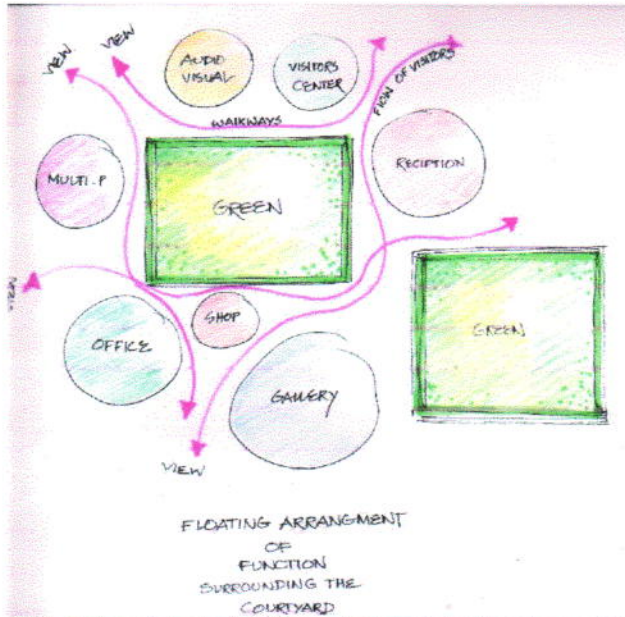 VIEW
VIEW
AUDIO
VISUAL
VISITORS
CENTER
FLOW OF VISITORS
WALKWAYS
MULTI-P
GREEN
RECIPTION
VIEW
OFFICE
SHOP
GREEN
GALLERY
VIEW
FLOATING ARRANGMENT
OF
FUNCTION
SURROUNDING THE
COURTYARD